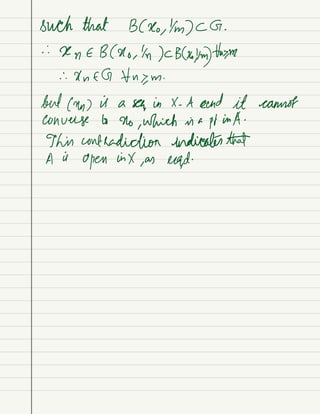 such that B(x₀, 1/m) ⊂ G.
∴ xₙ ∈ B(x₀, 1/n) ⊂ B(x₀, 1/m) ∀n≥m
∴ xₙ ∈ G ∀n ≥ m.
but (xₙ) is a seq in X-A and it cannot
converge to x₀, which is a pt in A.
This contradiction indicates that
A is open in X, as reqd.